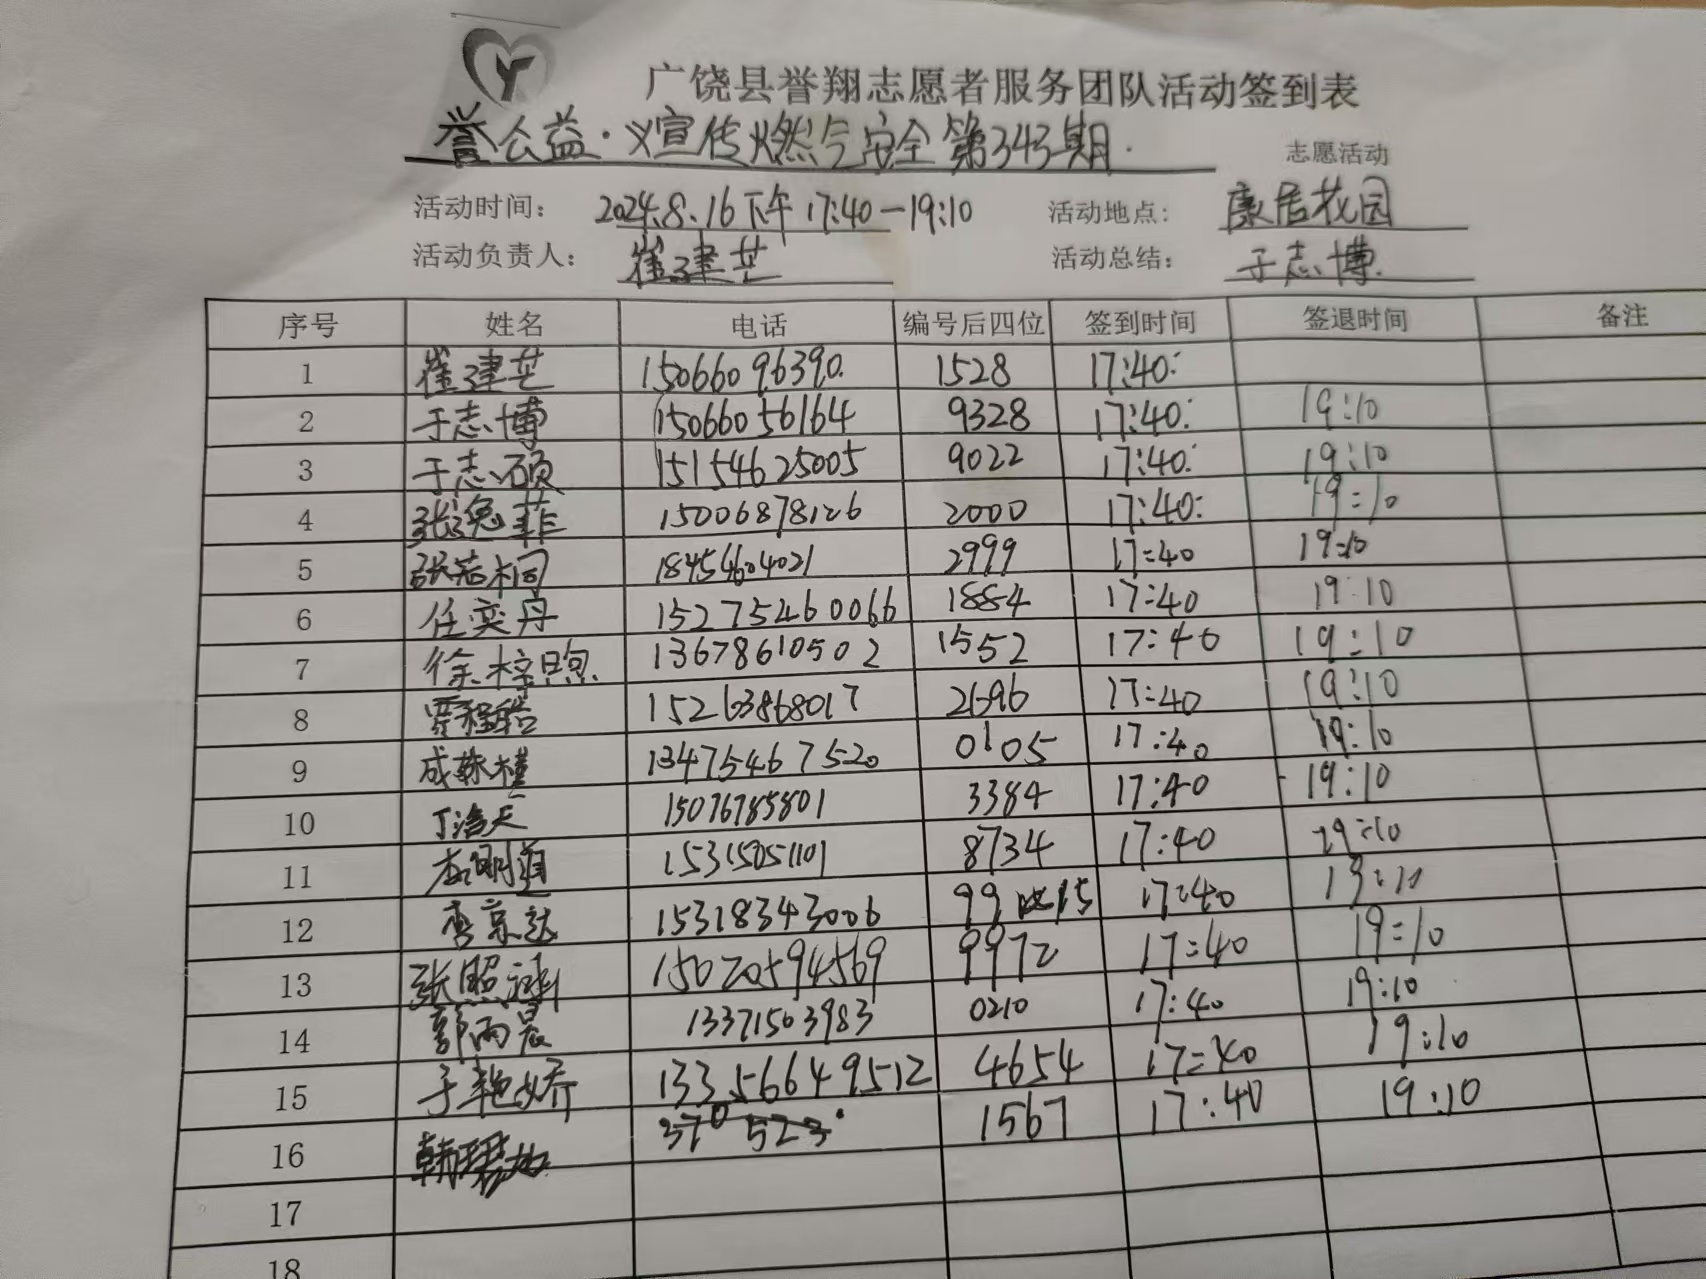 Y
广饶县誉翔志愿者服务团队活动签到表
誉公益·义宣传燃气安全第343期. 志愿活动
活动时间: 2024.8.16下午17:40-19:10 活动地点: 康居花园
活动负责人: 崔建芝 活动总结: 于志博
序号 姓名 电话 编号后四位 签到时间 签退时间 备注
1 崔建芝 15066096390. 1528 17:40:
2 于志博 15066056164 9328 17:40: 19:10
3 于志硕 15154625005 9022 17:40: 19:10
4 张逸菲 15006878126 2000 17:40: 19:10
5 张若桐 18454604021 2999 17:40 19:10
6 任奕丹 152775460066 1884 17:40 19:10
7 徐梓煦 13678610502 1552 17:40 19:10
8 贾程皓 15263868017 2696 17:40 19:10
9 成姝槿 13475467520 0105 17:40 19:10
10 丁浩天 15076785801 3384 17:40 19:10
11 李明道 15315051101 8734 17:40 19:10
12 李京达 15318343006 99 15 17:40 19:10
13 张照涵 15020594569 9972 17:40 19:10
14 郭雨晨 13371563983 0210 17:40 19:10
15 于艳娇 13356649512 4654 17:40 19:10
16 韩 370 523 1567 17:40 19:10
17
18